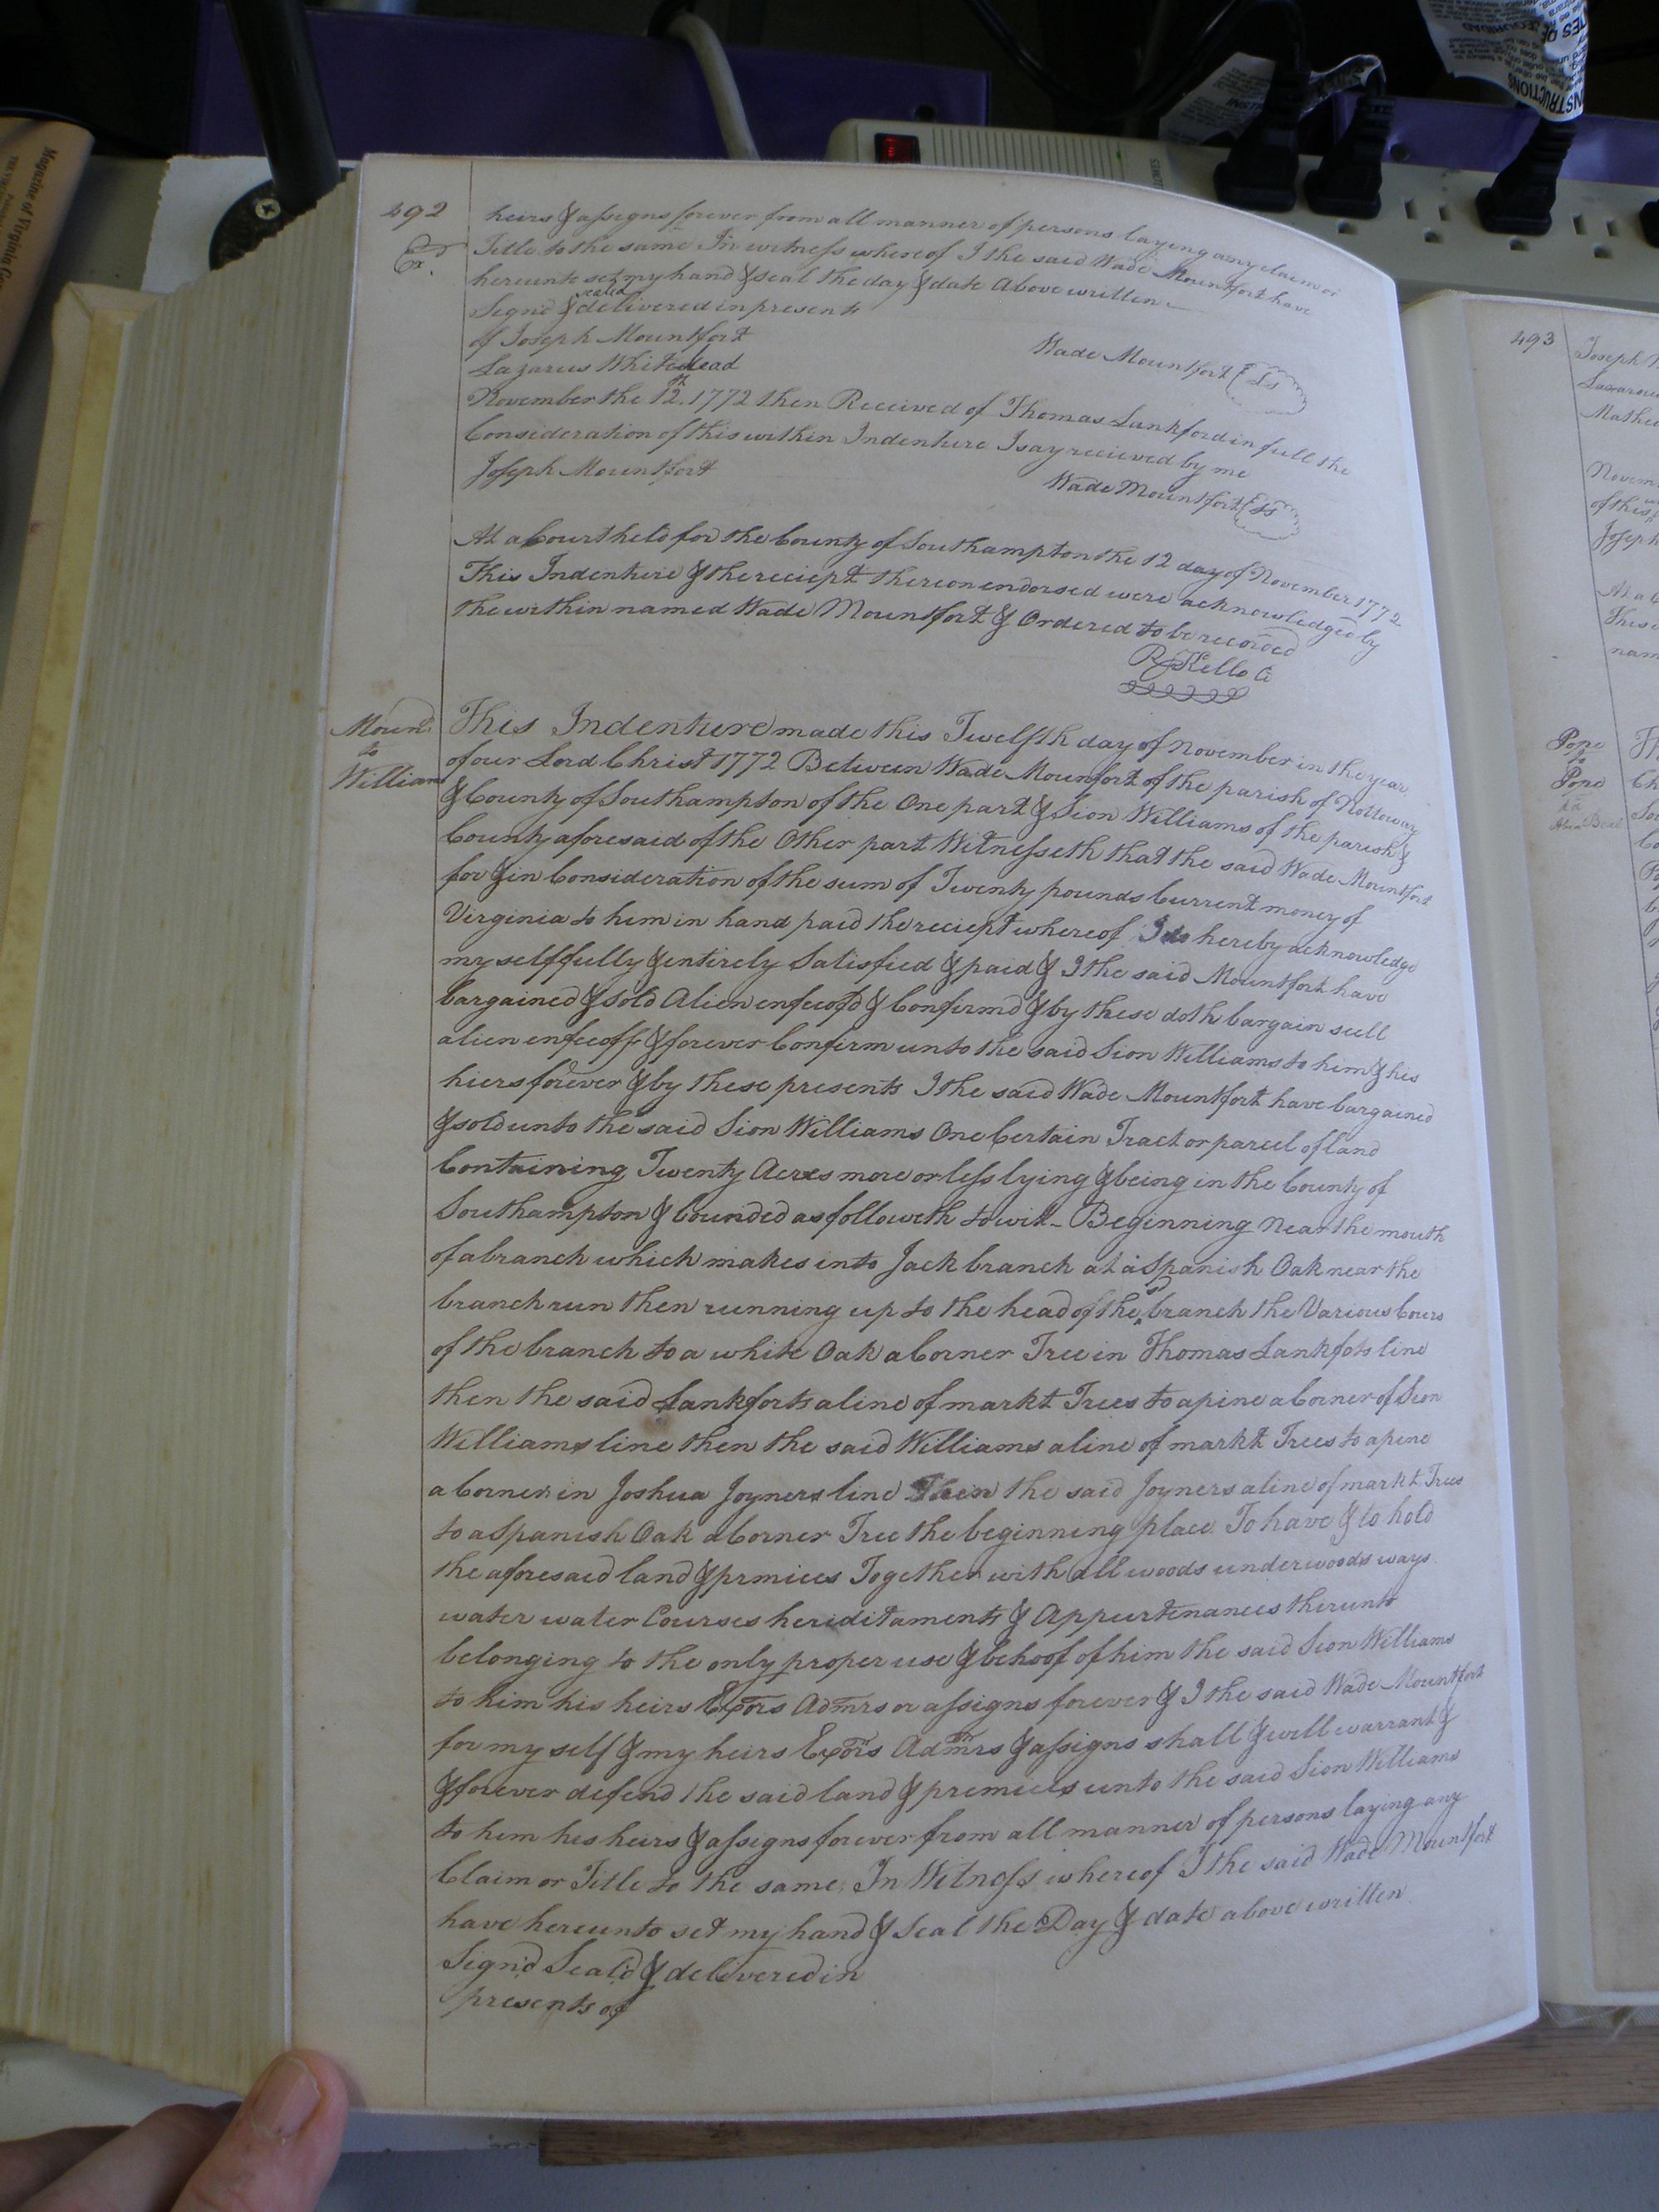 492
heirs & assigns forever from all manner of persons laying any claim or
Ex.
Title to the same In witness whereof I the said Wade Mountfort have
hereunto set my hand & seal the day & date Above written
Signd & sealed delivered in presents
of Joseph Mountfort
Wade Mountfort Ls
Lazarus Whitehead
November the 12th. 1772 then Received of Thomas Lankford in full the
Consideration of this within Indenture I say recieved by me
Joseph Mountfort
Wade Mountfort Ls
At a Court held for the County of Southampton the 12 day of November 1772
This Indenture & the reciept thereon endorsed were acknowledged by
the within named Wade Mountfort & Ordered to be recorded
R Kello Cl
Mount
to
William
This Indenture made this Twelfth day of November in the year
of our Lord Christ 1772 Between Wade Mounfort of the parish of Nottoway
& County of Southampton of the One part & Sion Williams of the parish &
County aforesaid of the Other part Witnesseth that the said Wade Mountfort
for & in Consideration of the sum of Twenty pounds Current money of
Virginia to him in hand paid the reciept whereof I do hereby acknowledge
my self fully & entirely Satisfied & paid & I the said Mountfort have
bargained & sold Alien enfeoff'd & Confirmd & by these doth bargain sell
alien enfeoff & forever Confirm unto the said Sion Williams to him & his
hiers forever & by these presents I the said Wade Mountfort have bargained
& sold unto the said Sion Williams One Certain Tract or parcel of land
Containing Twenty Acres more or less lying & being in the County of
Southampton & bounded as followeth to wit - Beginning near the mouth
of a branch which makes into Jack branch at a Spanish Oak near the
branch run then running up to the head of the sd branch the Various Cours
of the branch to a white Oak a Corner Tree in Thomas Lankfots line
then the said Lankforts a line of markt Trees to a pine a Corner of Sion
Williams line then the said Williams a line of markt Trees to a pine
a Corner in Joshua Joyners line Then the said Joyners a line of markt Trees
to a Spanish Oak a Corner Tree the beginning place To have & to hold
the aforesaid land & prmices Together with all woods underwoods ways
water water Courses hereditaments & Appurtenances therunto
belonging to the only proper use & behoof of him the said Sion Williams
to him his heirs Exors Admrs or assigns forever & I the said Wade Mountfort
for my self & my heirs Exors Admrs & assigns shall & will warrant &
& forever defend the said land & premices unto the said Sion Williams
to him his heirs & assigns forever from all manner of persons laying any
Claim or Title to the same, In Witness whereof I the said Wade Mountfort
have hereunto set my hand & Seal the Day & date above written
Signd Seal'd & delivered in
presents of
493
Joseph
Mathe
Novem
of this
Joseph
At a
These
nam
Pope
to
Pope
Magazine of Virginia
INSTRUCTIONS